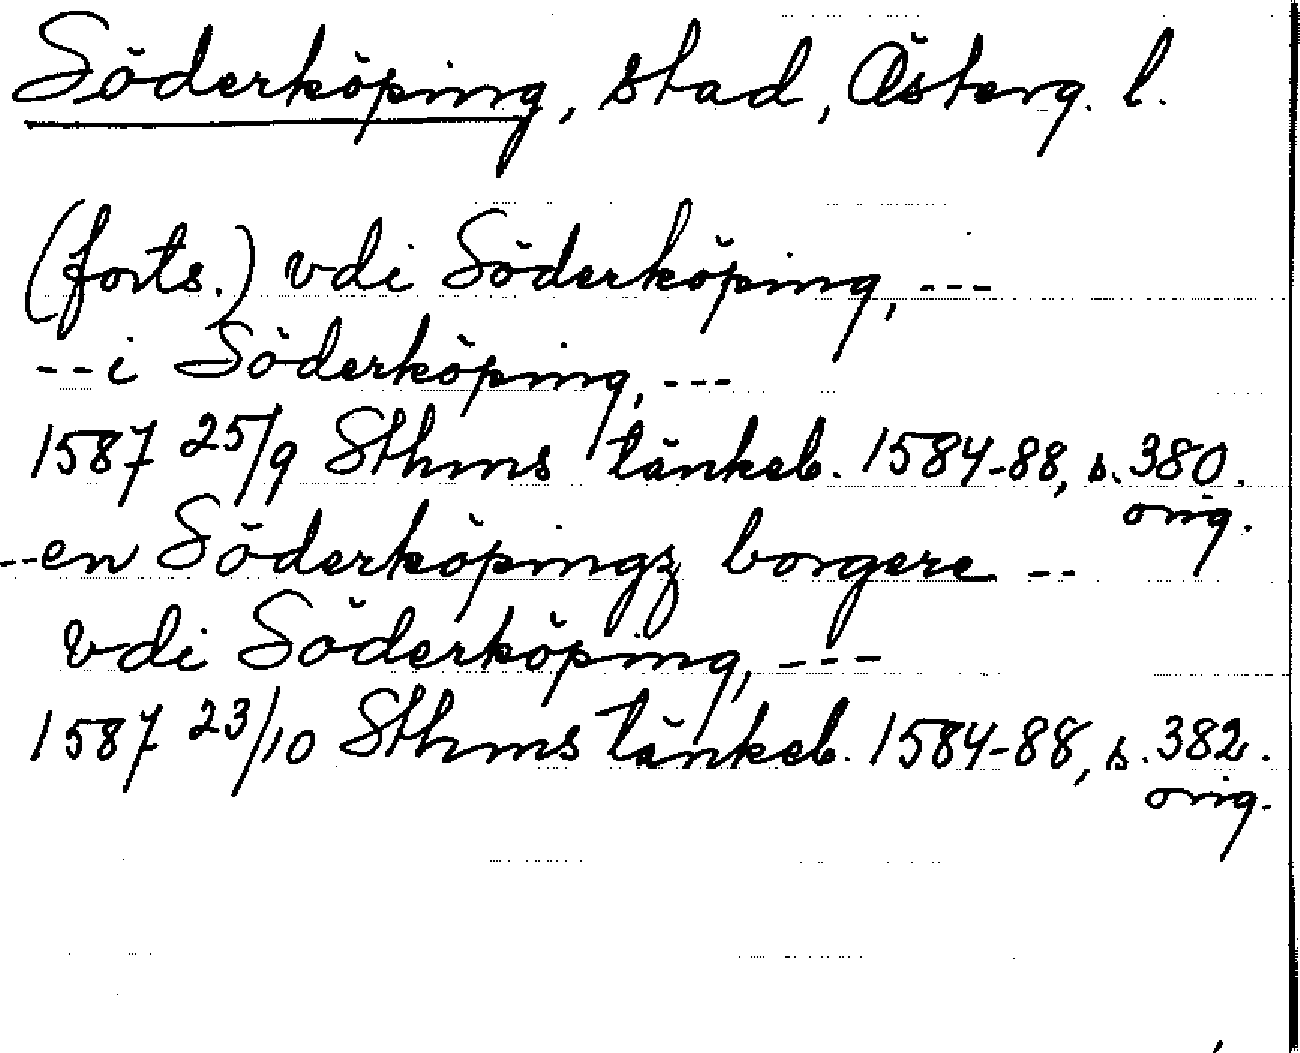 Söderköping, stad, Österg. l.
(forts.) vdi Söderköping, ---
-- i Söderköping, ---
1587 25/9 Sthms tänkeb. 1584-88, s. 380.
orig.
-- en Söderköpingz borgere --
vdi Söderköping, ---
1587 23/10 Sthms tänkeb. 1584-88, s. 382.
orig.